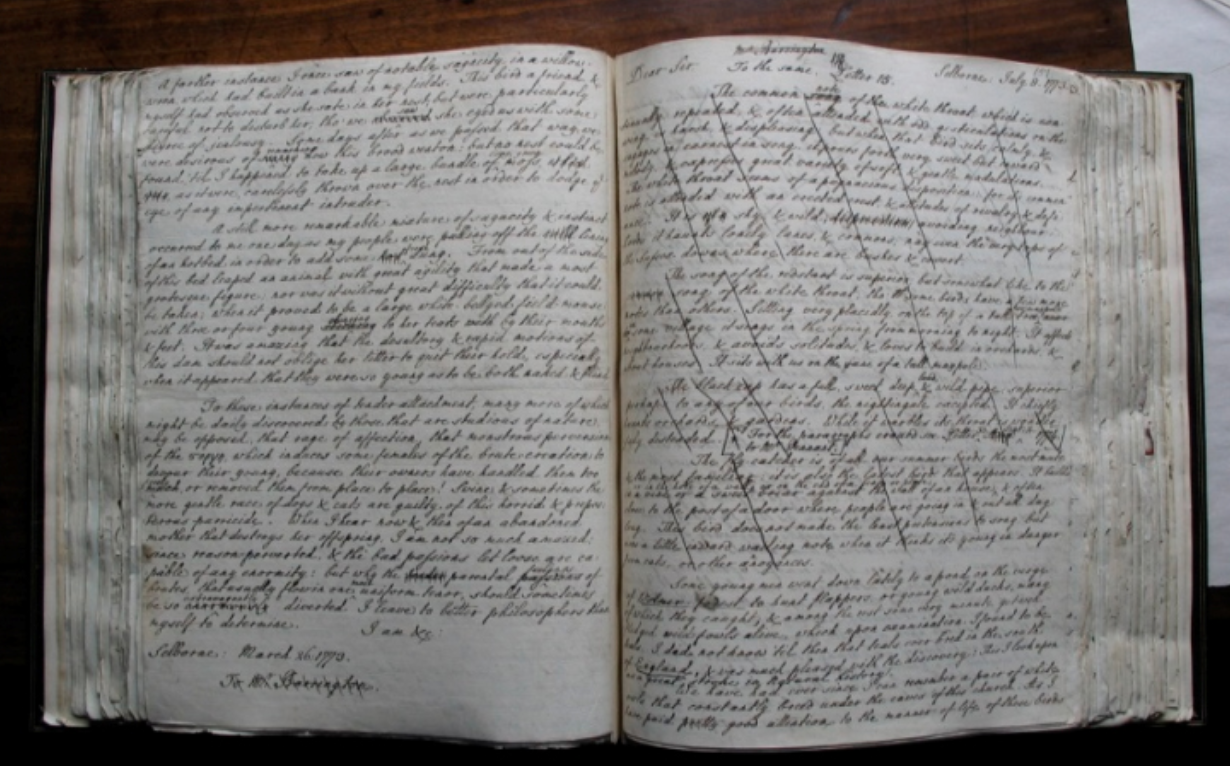 A farther instance I once saw of notable sagacity in a willow-
wren, which had built in a bank in my fields. This bird a friend &
myself had observed as she sate in her nest; but were particularly
careful not to disturb her, tho' we she eyed us with some
degree of jealousy. Some days after as we passed that way, we
were desirous of how this brood went on: but no nest could be
found, 'til I happened to take up a large bundle of moss,
as it were, carelessly thrown over the nest in order to dodge
eye of any impertinent intruder.
A still more remarkable mixture of sagacity & instinct
occurred to me one day as my people were pulling off the lining
of an hotbed, in order to add some dung. From out of the side
of this bed leaped an animal with great agility that made a most
grotesque figure; nor was it without great difficulty that it could
be taken; when it proved to be a large white-bellyed field-mouse
with three or four young to her teats with by their mouths
& feet. It was amazing that the desultory & rapid motions of
this dam should not oblige her litter to quit their hold, especially
when it appeared, that they were so young as to be both naked & blind.
To these instances of tender attachment, many more of which
might be daily discovered by those that are studious of nature,
may be opposed that rage of affection, that monstrous perversion
of the, which induces some females of the brute-creation to
devour their young, because their owners have handled them too
or removed them from place to place! Swine, & sometimes the
more gentle race of dogs & cats are guilty of this horrid & prepos-
terous parricide. When I hear now & then of an abandoned
mother that destroys her offspring, I am not so much amazed;
since reason perverted, & the bad passions let loose, are ca-
pable of any enormity: but why the parental of
brutes, that usually flow in one uniform tenor, should sometimes
be so diverted, I leave to better philosophers than
myself to determine.
I am &c:
Selborne: March 26. 1773.
To Mr. Barrington.
Mr. Barrington
Dear Sir. To the same. Letter 15. Selborne: July 8. 1773.
The common of the white throat, which is con-
repeated, & often attended with odd gesticulations on the
wing, harsh, & displeasing: but when that bird sits calmly, &
engages in earnest in song, it pours forth very sweet, but inward
melody, & expresses great variety of soft & gentle modulations.
The white throat seems of a pugnacious disposition: for
is attended with an erected crest, & attitudes of rivalry & defi-
It is shy, & wild, avoiding neighbour-
it haunts lonely lanes, & commons, nay even the very tops of
the Sussex-downs, where there are bushes & covert.
The song of the redstart is superior, but somewhat like to the
song of the white throat: have a few more
notes than others. Sitting very placidly on the top of a tall
in a village it sings in the spring from morning to night: It affects
neighbourhood, & avoids solitude, & loves to build in orchards, &
about houses. It sits with us on the vane of a tall maypole.
The black-cap has a full, sweet, deep, & wild pipe, superior
perhaps to any of our birds, the nightingale excepted. It chiefly
haunts orchards, & gardens. While it warbles its throat is
distended. For the paragraphs erased see Letter
The fly-catcher is of all our summer birds the most mute
& the most familiar; it is also the latest bird that appears. It builds
in a vine, or a sweet-briar against the wall of an house, & often
close to the post of a door where people are going in & out all day
long. This bird does not make the least pretension to song, but
uses a little inward wailing note when it thinks its young in danger
from cats, or other annoyances.
Some young men went down lately to a pond on the verge
of Wolmer-forest to hunt flappers, or young wild-ducks, many
of which they caught, & among the rest some very minute yet well-
fledged wild-fowls alive, which upon examination I found to be
teals. I did not know 'til then that teals ever bred in the south
of England, & was much pleased with the discovery: This I look upon
as a great stroke in Natural history.
We have had ever since I can remember a pair of white
owls that constantly breed under the eaves of this church. As I
have paid pretty good attention to the manner of life of these birds